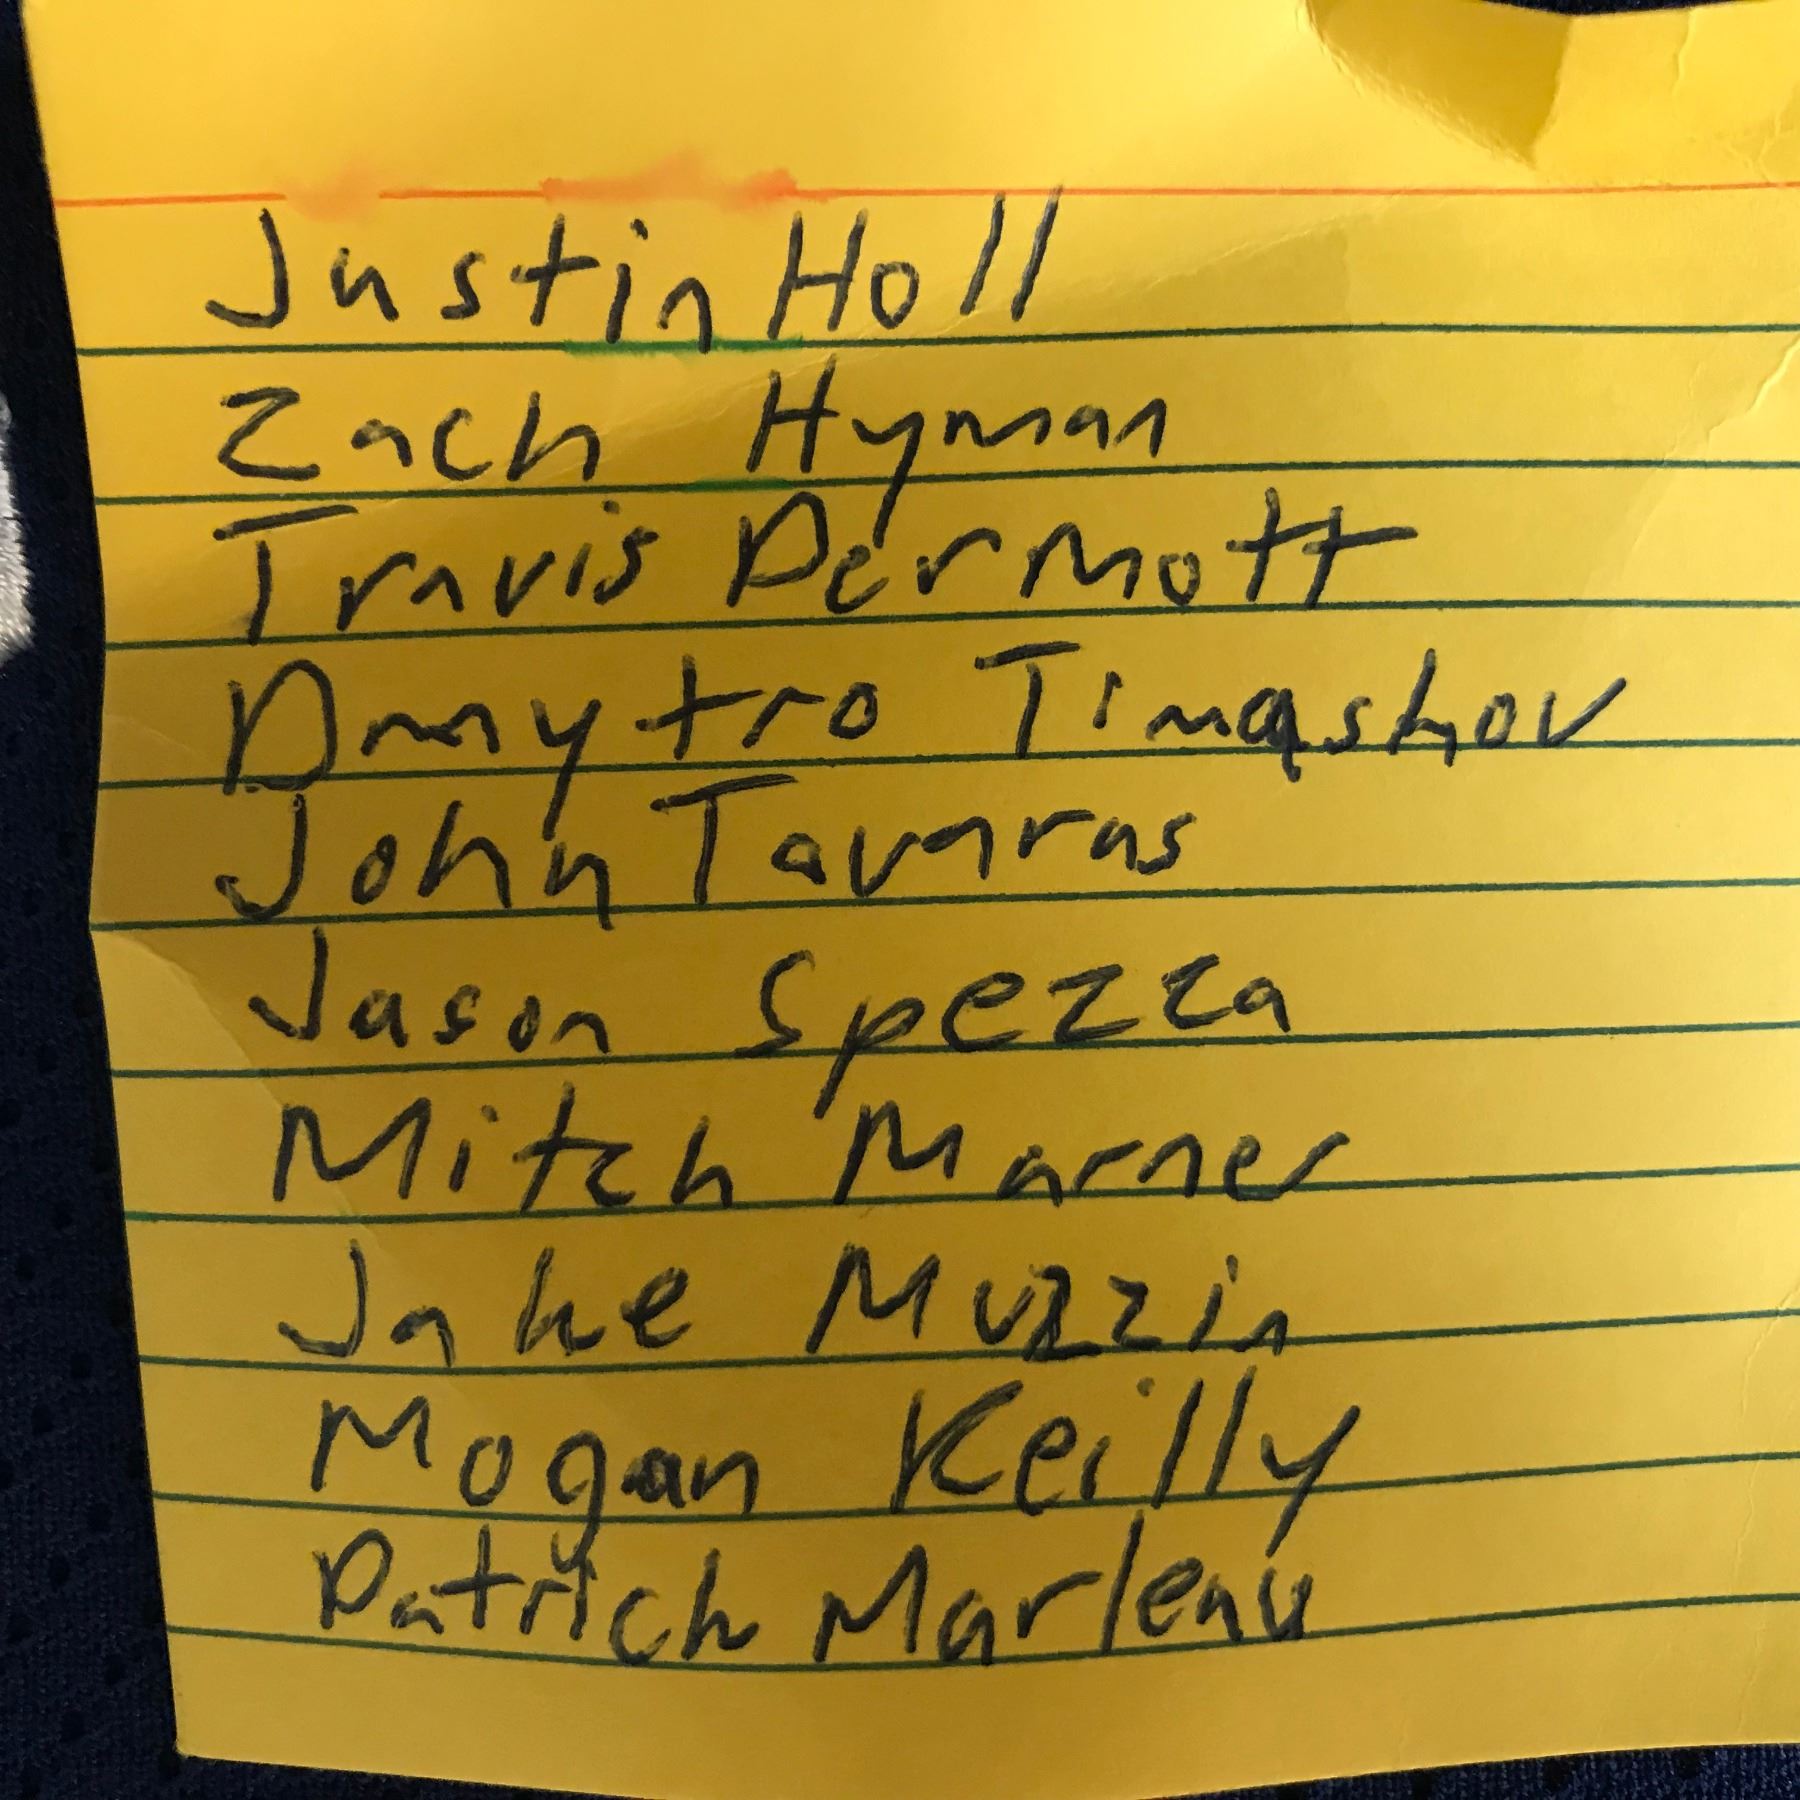 Justin Holl
Zach Hyman
Travis Dermott
Dmytro Timashov
John Tavaras
Jason Spezza
Mitch Marner
Jake Muzzin
Mogan Reilly
Patrick Marleau